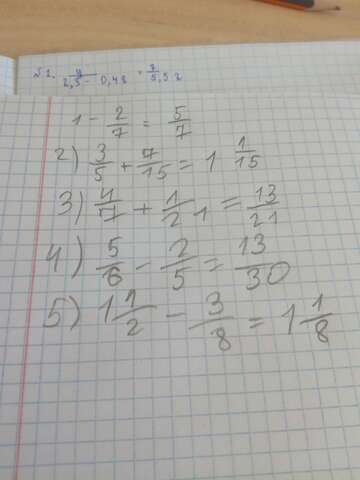 №1. y/2,5 - 0,48 = 7/5,52
1 - 2/7 = 5/7
2) 3/5 + 7/15 = 1 1/15
3) 4/7 + 1/21 = 13/21
4) 5/6 - 2/5 = 13/30
5) 1 1/2 - 3/8 = 1 1/8